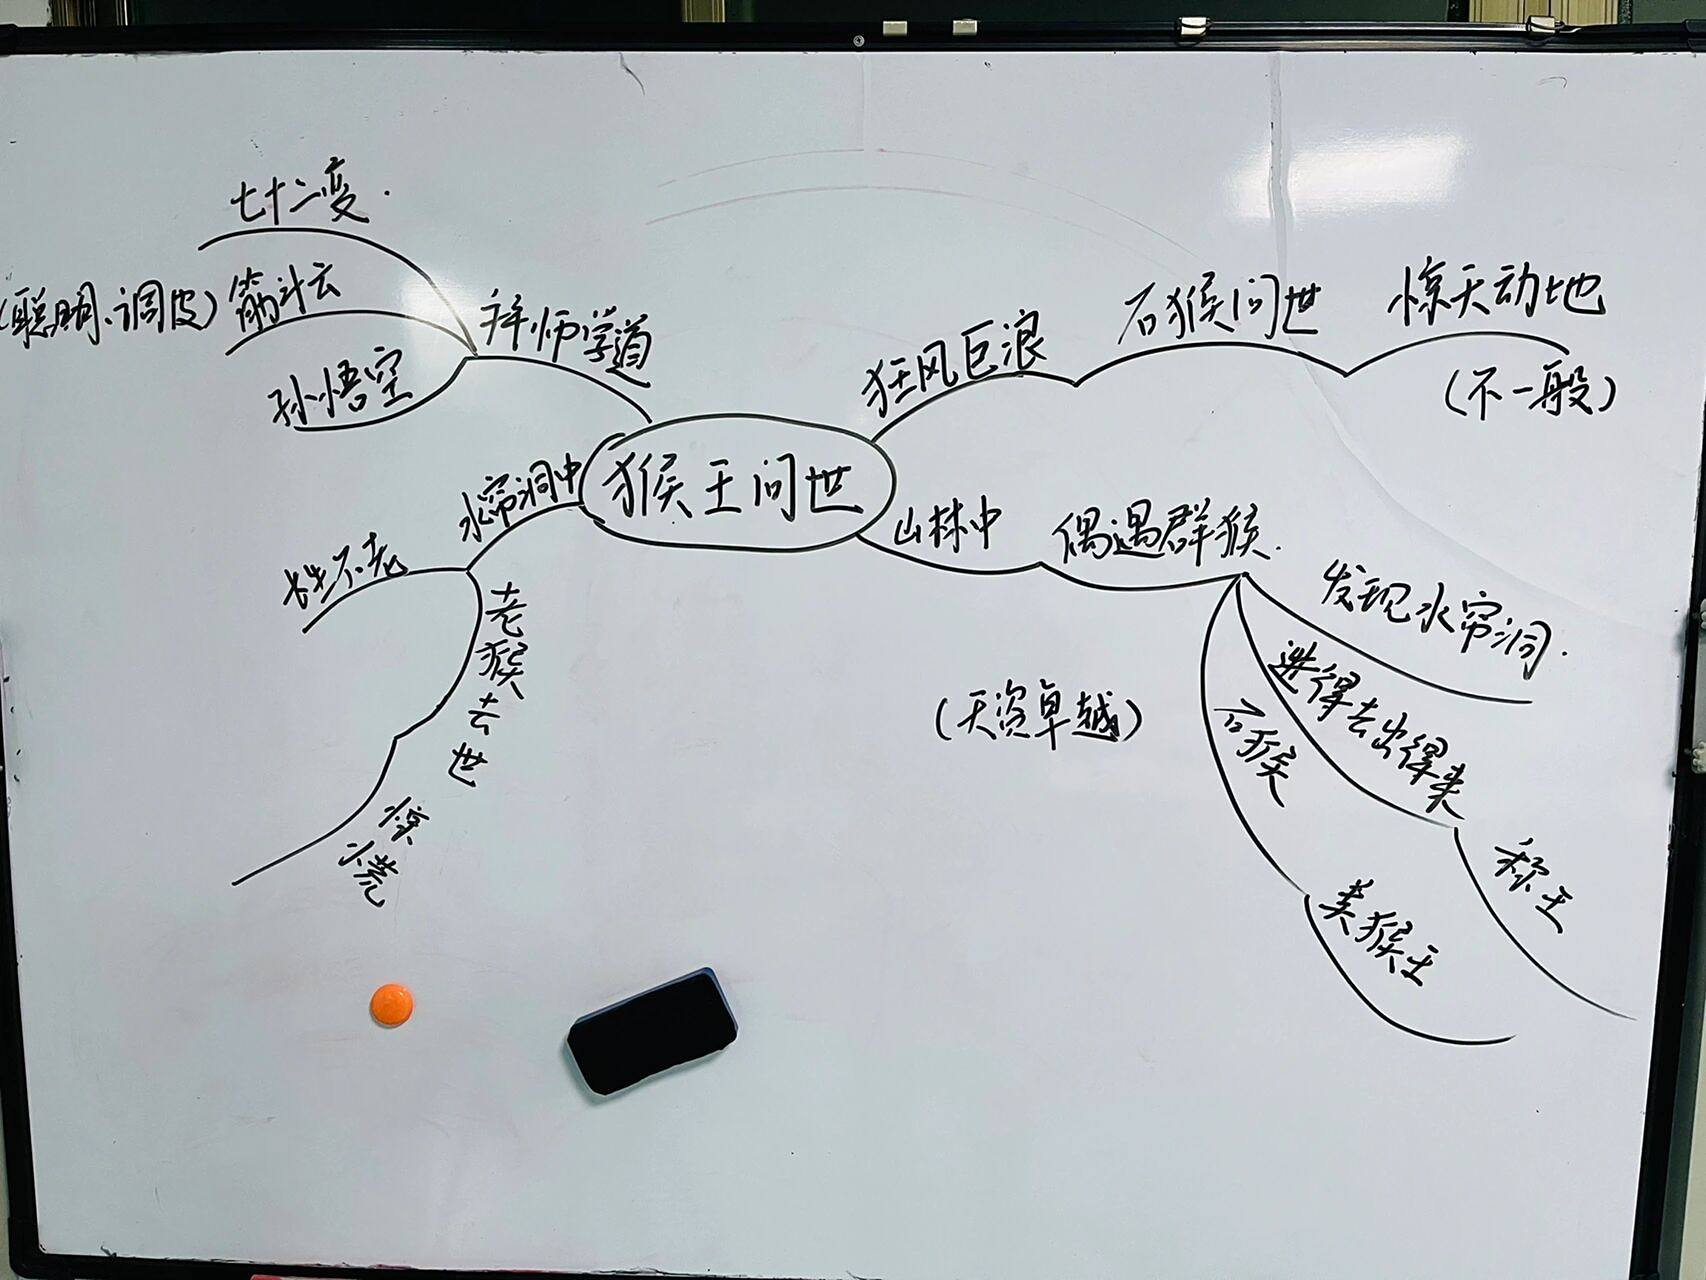 七十二变.
(聪明、调皮)
筋斗云
孙悟空
拜师学道
猴王问世
狂风巨浪
石猴问世
惊天动地
(不一般)
水帘洞中
长生不老
老猴去世
惊慌
山林中
偶遇群猴.
(天资卓越)
发现水帘洞.
进得去出得来
称王
石猴
美猴王